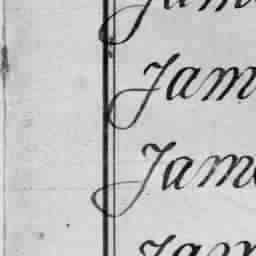 Jame
Jam
Jame
Jam